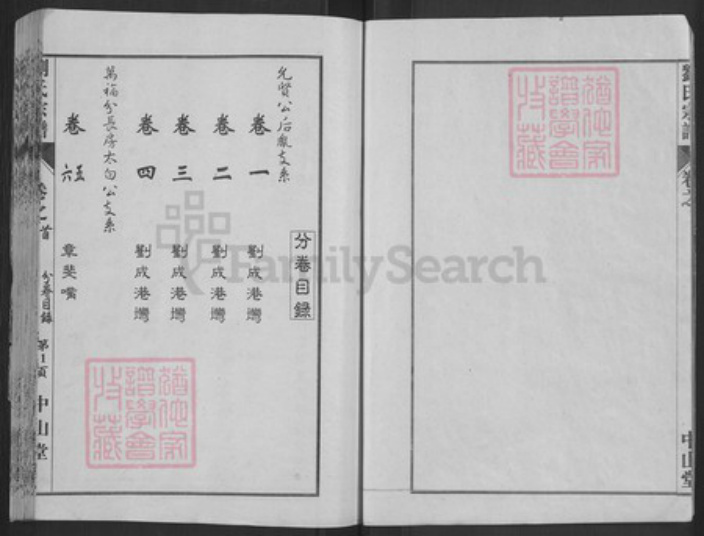 劉氏宗譜
卷之
中山堂
分卷目錄
允賢公后裔支系
卷一 劉成港灣
卷二 劉成港灣
卷三 劉成港灣
卷四 劉成港灣
萬福分長房太白公支系
卷五六 章斐嘴
劉氏宗譜
卷之首
分卷目錄
第1頁
中山堂
譜學會
收藏
譜學會
收藏
FamilySearch